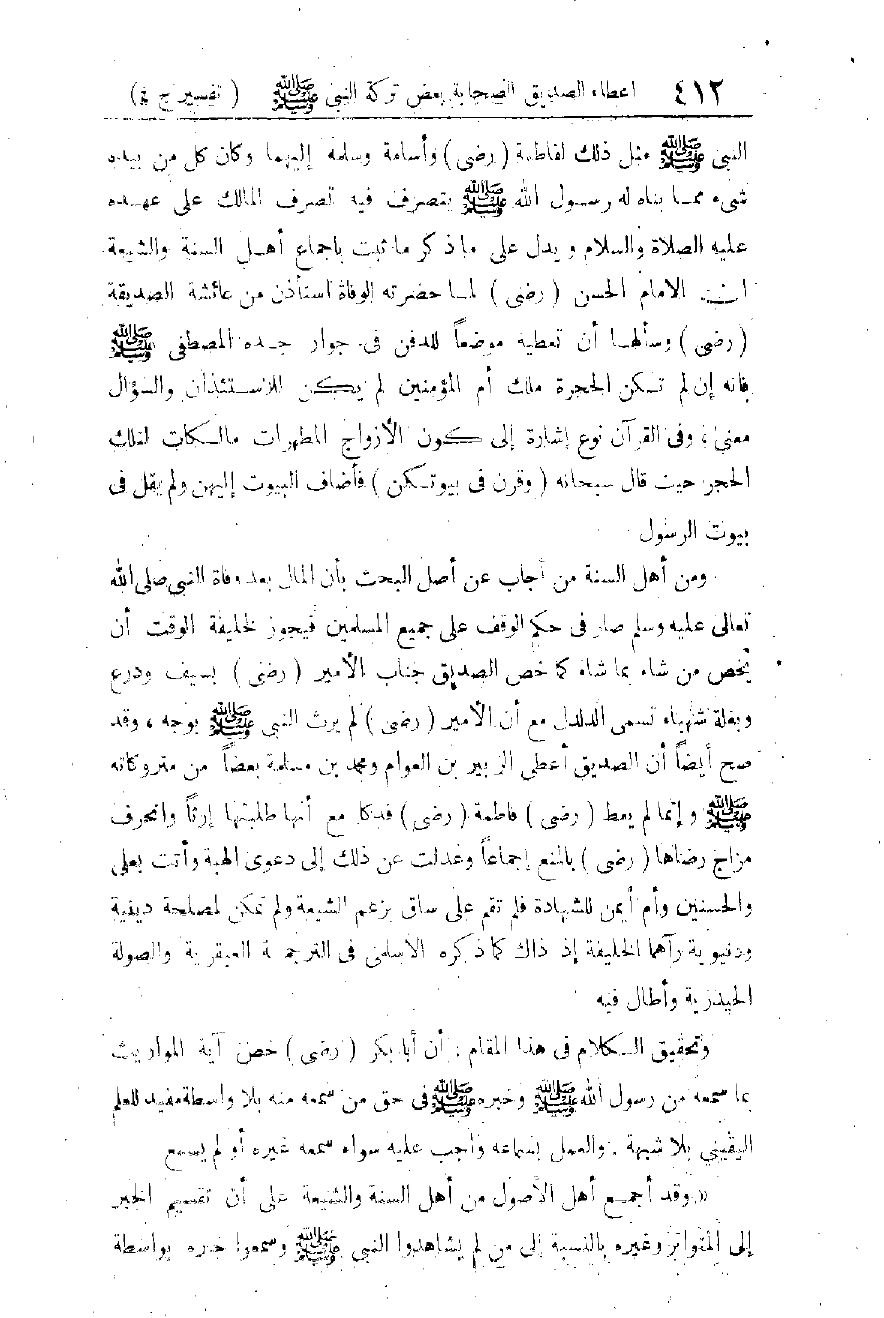 ٤١٢ اعطاء الصديق الصحابة بعض تركة النبي ﷺ ( تفسير ج ٤ )
النبي ﷺ مثل ذلك لفاطمة ( رضى ) وأسامة وسلمه إليهما وكان كل من بيده
شىء مما بناه له رسول الله ﷺ يتصرف فيه تصرف المالك على عهده
عليه الصلاة والسلام ويدل على ما ذكر ما ثبت باجماع أهل السنة والشيعة
ان الامام الحسن ( رضى ) لما حضرته الوفاة استأذن من عائشة الصديقة
( رضى ) وسألها أن تعطيه موضعاً للدفن فى جوار جده المصطفى ﷺ
فانه إن لم تكن الحجرة ملك أم المؤمنين لم يكن للاستئذان والسؤال
معنى ، وفى القرآن نوع إشارة إلى كون الأزواج المطهرات مالكات لتلك
الحجر حيث قال سبحانه ( وقرن فى بيوتكن ) فأضاف البيوت إليهن ولم يقل فى
بيوت الرسول
ومن أهل السنة من أجاب عن أصل البحث بأن المال بعد وفاة النبي صلى الله
تعالى عليه وسلم صار فى حكم الوقف على جميع المسلمين فيجوز لخليفة الوقت أن
يخص من شاء بما شاء كما خص الصديق جناب الأمير ( رضى ) بسيف ودرع
وبغلة شهباء تسمى الدلدل مع أن الأمير ( رضى ) لم يرث النبي ﷺ بوجه ، وقد
صح أيضاً أن الصديق أعطى الزبير بن العوام ومحمد بن مسلمة بعضاً من متروكاته
ﷺ وإنما لم يعط ( رضى ) فاطمة ( رضى ) فدكا مع أنها طلبتها إرثاً وانحرف
مزاج رضاها ( رضى ) بالمنع إجماعاً وعدلت عن ذلك إلى دعوى الهبة وأتت بعلى
والحسنين وأم أيمن للشهادة فلم تقم على ساق بزعم الشيعة ولم تمكن لمصلحة دينية
ودنيوية رآهما الخليفة إذ ذاك كما ذكره الاسلمى فى الترجمة العبقرية والصولة
الحيدرية وأطال فيه
وتحقيق الكلام فى هذا المقام : أن أبا بكر ( رضى ) خص آية المواريث
بما سمعه من رسول الله ﷺ وخبره ﷺ فى حق من سمعه منه بلا واسطة مفيد للعلم
اليقيني بلا شبهة . والعمل بسماعه واجب عليه سواء سمعه غيره أو لم يسمع
« وقد أجمع أهل الأصول من أهل السنة والشيعة على أن تقسيم الخبر
إلى المتواتر وغيره بالنسبة إلى من لم يشاهدوا النبي ﷺ وسمعوا خبره بواسطة